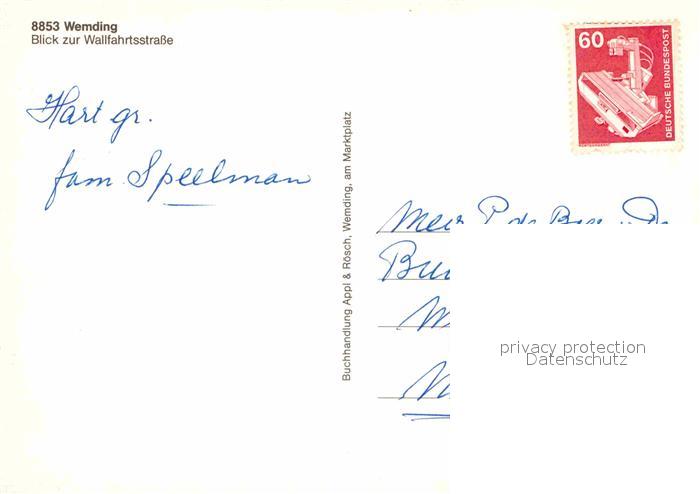 8853 Wemding
Blick zur Wallfahrtsstraße
Hart gr.
fam. Speelman
Buchhandlung Appl & Rösch, Wemding, am Marktplatz
60
DEUTSCHE BUNDESPOST
RÖNTGENGERÄT
privacy protection
Datenschutz